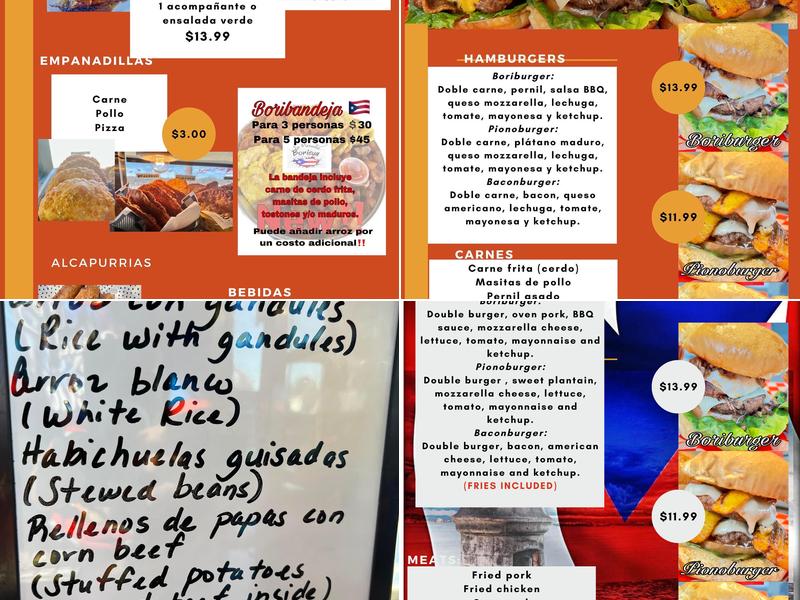 1 acompañante o
ensalada verde
$13.99
EMPANADILLAS
Carne
Pollo
Pizza
$3.00
Boribandeja
Para 3 personas $30
Para 5 personas $45
La bandeja incluye
carne de cerdo frita,
masitas de pollo,
tostones y/o maduros.
Puede añadir arroz por
un costo adicional!!
ALCAPURRIAS
BEBIDAS
HAMBURGERS
Boriburger:
Doble carne, pernil, salsa BBQ,
queso mozzarella, lechuga,
tomate, mayonesa y ketchup.
Pionoburger:
Doble carne, plátano maduro,
queso mozzarella, lechuga,
tomate, mayonesa y ketchup.
Baconburger:
Doble carne, bacon, queso
americano, lechuga, tomate,
mayonesa y ketchup.
$13.99
Boriburger
$11.99
Pionoburger
CARNES
Carne frita (cerdo)
Masitas de pollo
Pernil asado
con gandules
(Rice with gandules)
Arroz blanco
(White Rice)
Habichuelas guisadas
(Stewed beans)
Rellenos de papas con
corn beef
(Stuffed potatoes
inside)
Boriburger:
Double burger, oven pork, BBQ
sauce, mozzarella cheese,
lettuce, tomato, mayonnaise and
ketchup.
Pionoburger:
Double burger , sweet plantain,
mozzarella cheese, lettuce,
tomato, mayonnaise and
ketchup.
Baconburger:
Double burger, bacon, american
cheese, lettuce, tomato,
mayonnaise and ketchup.
(FRIES INCLUDED)
$13.99
Boriburger
$11.99
Pionoburger
MEATS
Fried pork
Fried chicken